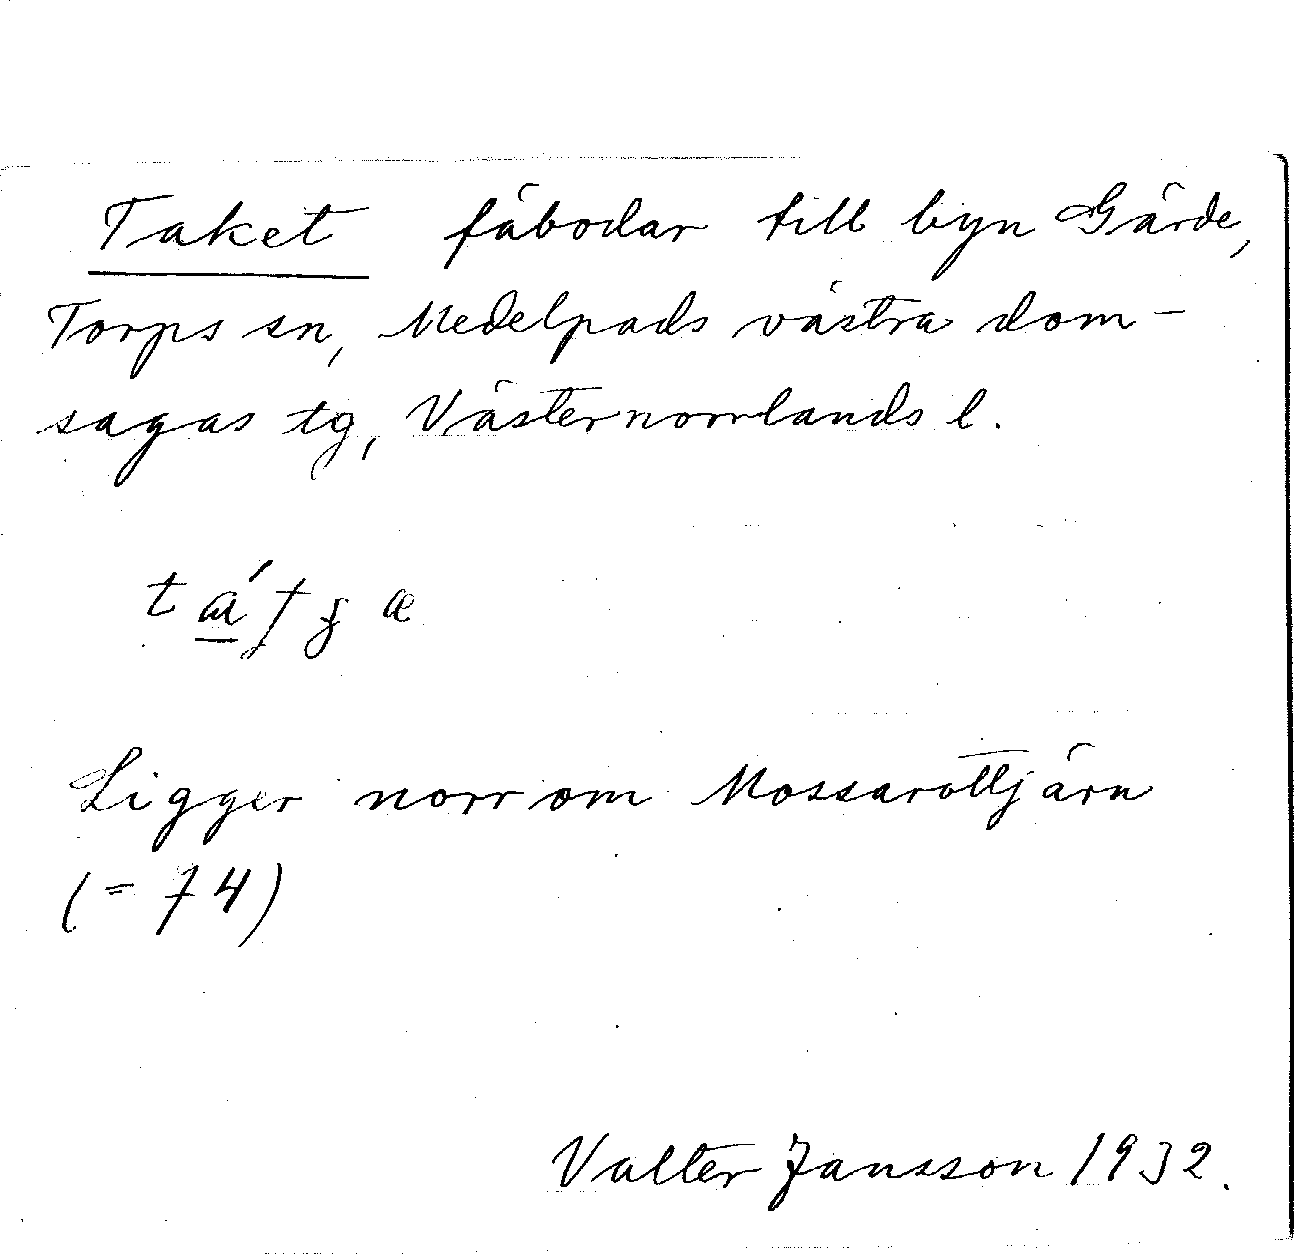 Taket fäbodar till byn Gärde,
Torps sn, Medelpads västra dom-
sagas tg, Västernorrlands l.
Ligger norr om Mossarottjärn
(= 74)
Valter Jansson 1932.